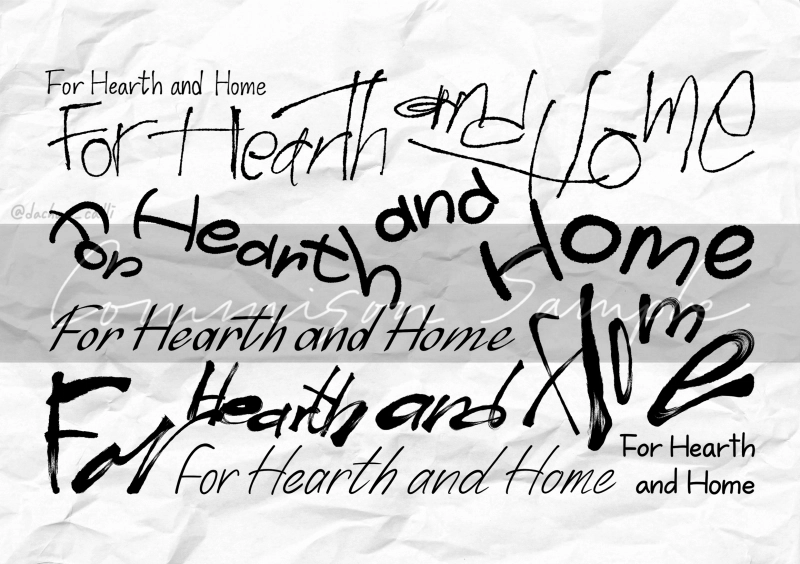 For Hearth and Home
For Hearth and Home
For Hearth and Home
Commison Sample
For Hearth and Home
For Hearth and Home
For Hearth and Home
For Hearth
and Home